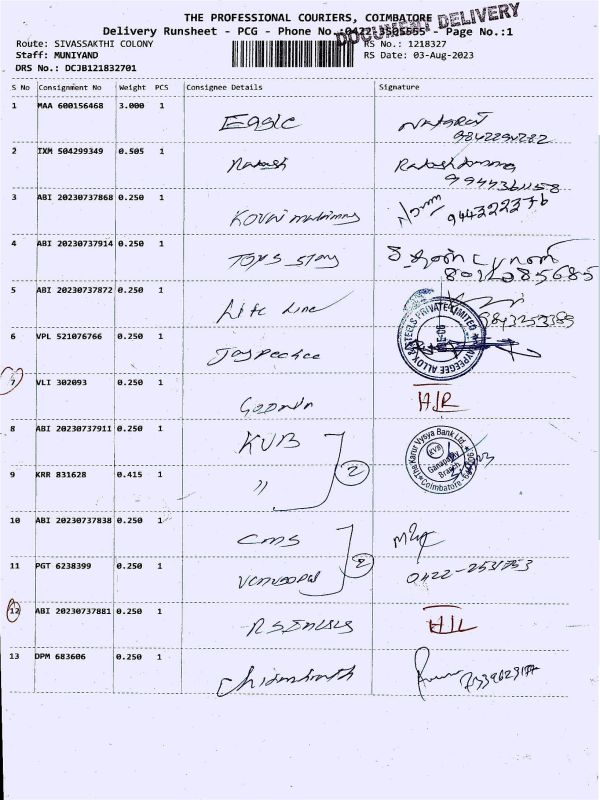 THE PROFESSIONAL COURIERS, COIMBATORE
DOCUMENT DELIVERY
Delivery Runsheet - PCG - Phone No.:0422-3505555 - Page No.:1
Route: SIVASSAKTHI COLONY
RS No.: 1218327
Staff: MUNIYAND
RS Date: 03-Aug-2023
DRS No.: DCJB121832701
S No Consignment No Weight PCS Consignee Details Signature
1 MAA 600156468 3.000 1 Eagle
9842294282
2 IXM 504299349 0.505 1
3 ABI 20230737868 0.250 1 Kovai
4 ABI 20230737914 0.250 1 Toys Story
5 ABI 20230737872 0.250 1 Life Line
6 VPL 521076766 0.250 1 Jaypeegee
JAYPEEGEE ALLOY & STEELS PRIVATE LIMITED
7 VLI 302093 0.250 1
8 ABI 20230737911 0.250 1 KVB
The Karur Vysya Bank Ltd.
KVB
Ganapathy
Branch
Coimbatore
9 KRR 831628 0.415 1 " 2
10 ABI 20230737838 0.250 1 CMS
11 PGT 6238399 0.250 1 Venugopal 2
0422-2531753
12 ABI 20230737881 0.250 1
13 DPM 683606 0.250 1